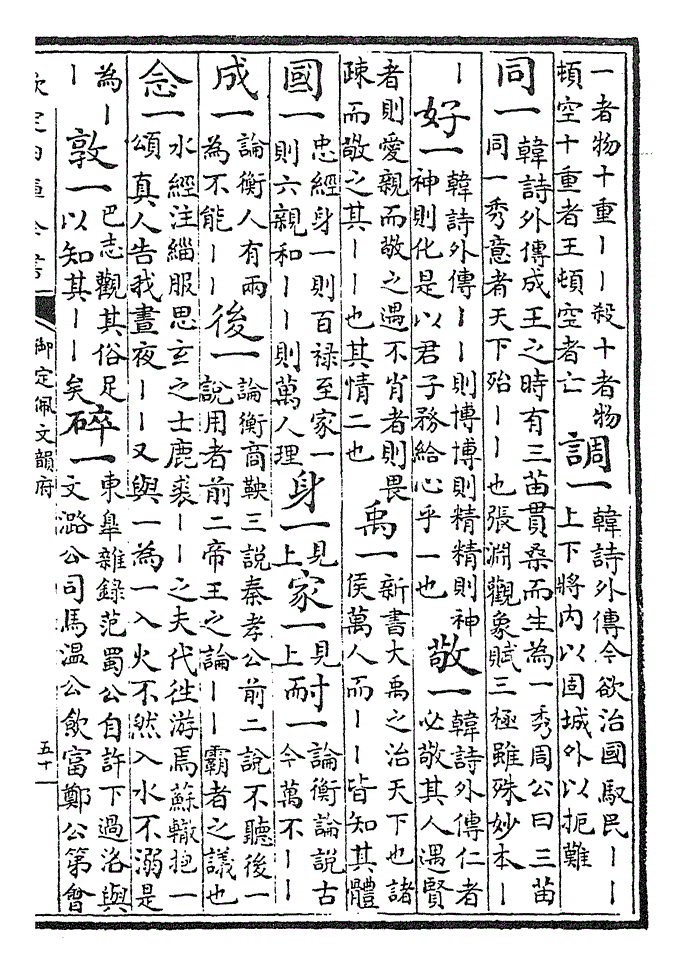 一者物十重丨丨殺十者物頓空十重者王頓空者亡 調一 韓詩外傳今欲治國馭民丨丨上下將内以固城外以扼難
同一 韓詩外傳成王之時有三苗貫桑而生為一秀周公曰三苗同一秀意者天下殆丨丨也張淵觀象賦三極雖殊妙本丨
丨 好一 韓詩外傳丨丨則博博則精精則神神則化是以君子務給心乎一也 敬一 韓詩外傳仁者必敬其人遇賢
者則愛親而敬之遇不肖者則畏疎而敬之其丨丨也其情二也 禹一 新書大禹之治天下也諸侯萬人而丨丨皆知其體
國一 忠經身一則百禄至家一則六親和丨丨則萬人理 身一 見上 家一 見上 耐一 論衡論說古今萬不丨丨
成一 論衡人有兩為不能丨丨 後一 論衡商鞅三說秦孝公前二說不聽後一說用者前二帝王之論丨丨霸者之議也
念一 水經注緇服思玄之士鹿裘丨丨之夫代徃游焉蘇轍抱一頌真人告我晝夜丨丨又與一為一入火不然入水不溺是
為丨丨 敦一 巴志觀其俗足以知其丨丨矣 碎一 東臯雜録范蜀公自許下過洛與文潞公司馬温公飲富鄭公第㑹
欽定四庫全書 御定佩文韻府 五十